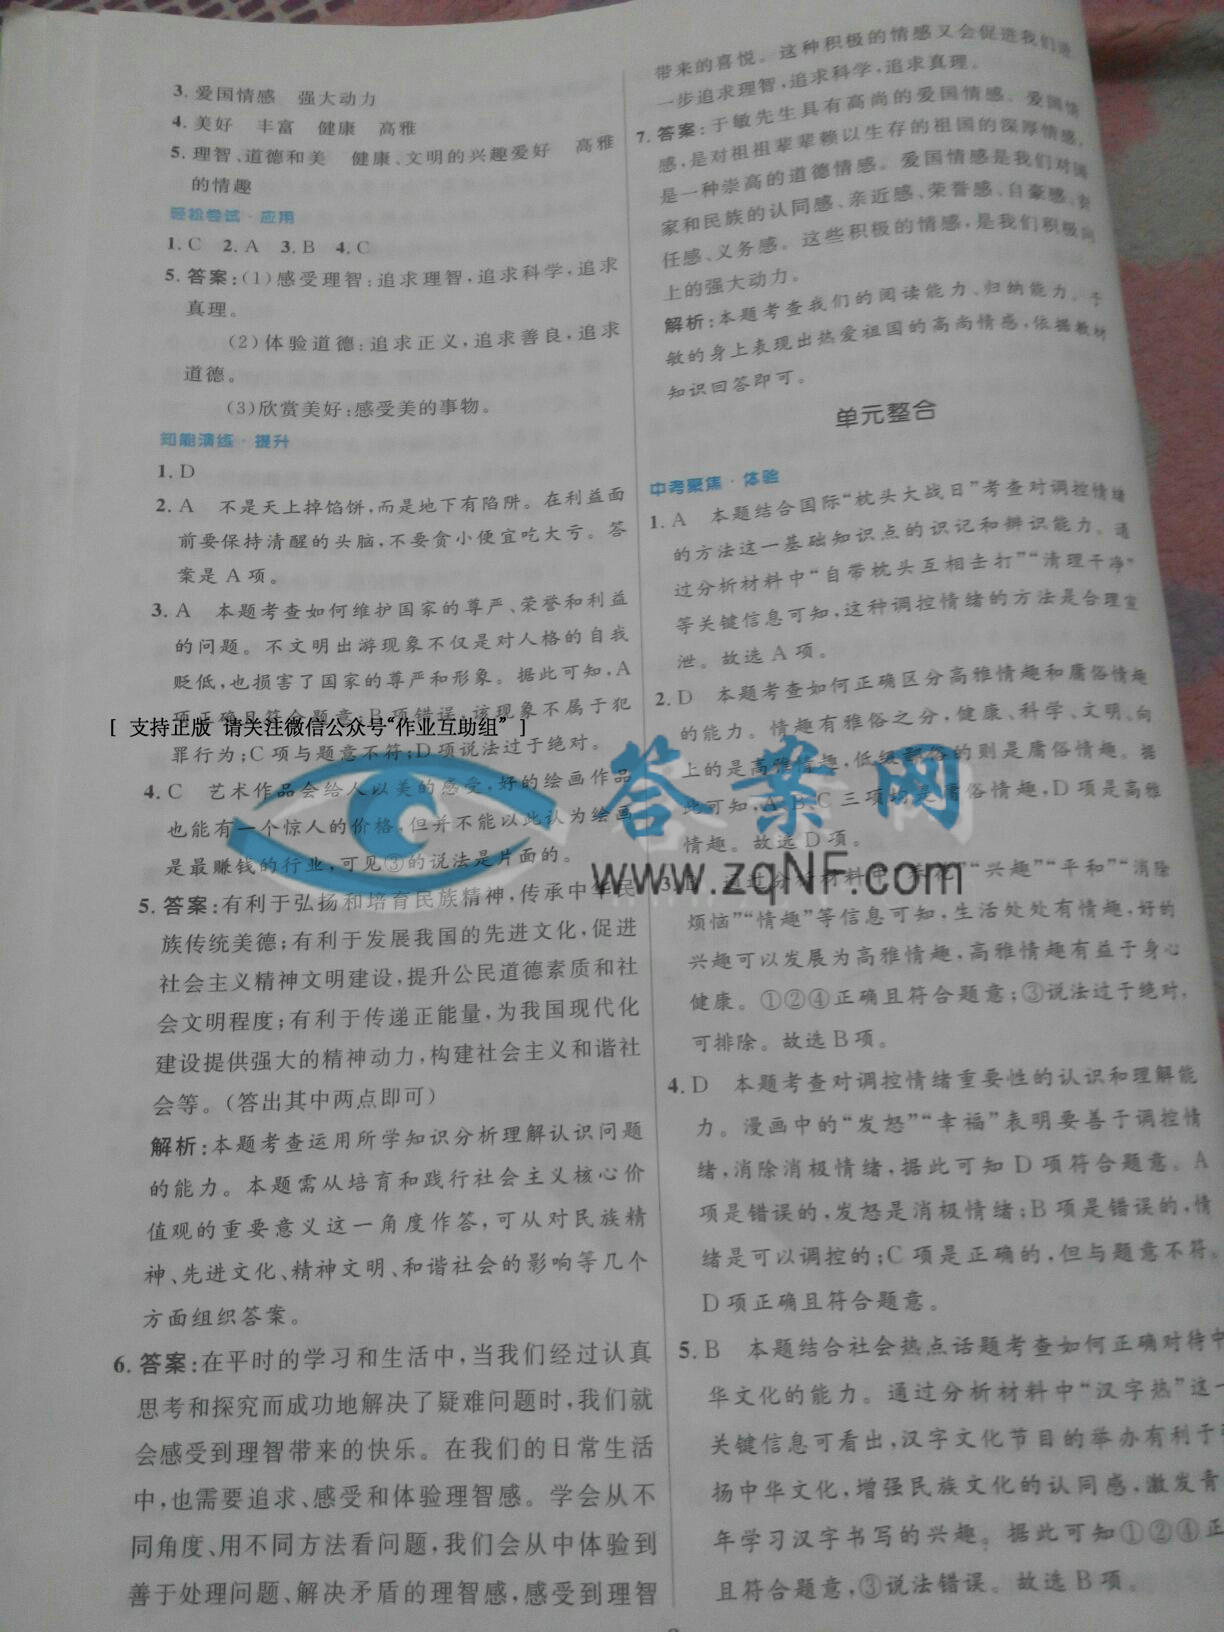 3. 爱国情感　强大动力
4. 美好　丰富　健康　高雅
5. 理智、道德和美　健康、文明的兴趣爱好　高雅
的情趣
轻松尝试·应用
1. C　2. A　3. B　4. C
5. 答案:(1)感受理智:追求理智,追求科学,追求
真理。
(2)体验道德:追求正义,追求善良,追求
道德。
(3)欣赏美好:感受美的事物。
知能演练·提升
1. D
2. A　不是天上掉馅饼,而是地下有陷阱。在利益面
前要保持清醒的头脑,不要贪小便宜吃大亏。答
案是 A 项。
3. A　本题考查如何维护国家的尊严、荣誉和利益
的问题。不文明出游现象不仅是对人格的自我
贬低,也损害了国家的尊严和形象。据此可知,A
项正确且符合题意;B项错误,该现象不属于犯
[ 支持正版 请关注微信公众号“作业互助组” ]
罪行为;C 项与题意不符;D 项说法过于绝对。
4. C　艺术作品会给人以美的感受,好的绘画作品
也能有一个惊人的价格,但并不能以此认为绘画
是最赚钱的行业,可见③的说法是片面的。
5. 答案:有利于弘扬和培育民族精神,传承中华民
族传统美德;有利于发展我国的先进文化,促进
社会主义精神文明建设,提升公民道德素质和社
会文明程度;有利于传递正能量,为我国现代化
建设提供强大的精神动力,构建社会主义和谐社
会等。(答出其中两点即可)
解析:本题考查运用所学知识分析理解认识问题
的能力。本题需从培育和践行社会主义核心价
值观的重要意义这一角度作答,可从对民族精
神、先进文化、精神文明、和谐社会的影响等几个
方面组织答案。
6. 答案:在平时的学习和生活中,当我们经过认真
思考和探究而成功地解决了疑难问题时,我们就
会感受到理智带来的快乐。在我们的日常生活
中,也需要追求、感受和体验理智感。学会从不
同角度、用不同方法看问题,我们会从中体验到
善于处理问题、解决矛盾的理智感,感受到理智
带来的喜悦。这种积极的情感又会促进我们进
一步追求理智,追求科学,追求真理。
7. 答案:于敏先生具有高尚的爱国情感。爱国情
感,是对祖祖辈辈赖以生存的祖国的深厚情感,
是一种崇高的道德情感。爱国情感是我们对国
家和民族的认同感、亲近感、荣誉感、自豪感、责
任感、义务感。这些积极的情感,是我们积极向
上的强大动力。
解析:本题考查我们的阅读能力、归纳能力。于
敏的身上表现出热爱祖国的高尚情感,依据教材
知识回答即可。
单元整合
中考聚焦·体验
1. A　本题结合国际“枕头大战日”考查对调控情绪
的方法这一基础知识点的识记和辨识能力。通
过分析材料中“自带枕头互相击打”“清理干净”
等关键信息可知,这种调控情绪的方法是合理宣
泄。故选 A 项。
2. D　本题考查如何正确区分高雅情趣和庸俗情趣
的能力。情趣有雅俗之分,健康、科学、文明、向
上的是高雅情趣,低级鄙俗的则是庸俗情趣。据
此可知,A、B、C 三项均是庸俗情趣,D 项是高雅
情趣。故选 D 项。
答案网
www.zqNF.com
3. 通过分析材料中“养花”“兴趣”“平和”“消除
烦恼”“情趣”等信息可知,生活处处有情趣,好的
兴趣可以发展为高雅情趣,高雅情趣有益于身心
健康。①②④正确且符合题意;③说法过于绝对,
可排除。故选 B 项。
4. D　本题考查对调控情绪重要性的认识和理解能
力。漫画中的“发怒”“幸福”表明要善于调控情
绪,消除消极情绪,据此可知 D 项符合题意。A
项是错误的,发怒是消极情绪;B 项是错误的,情
绪是可以调控的;C 项是正确的,但与题意不符。
D 项正确且符合题意。
5. B　本题结合社会热点话题考查如何正确对待中
华文化的能力。通过分析材料中“汉字热”这一
关键信息可看出,汉字文化节目的举办有利于
扬中华文化,增强民族文化的认同感,激发青
年学习汉字书写的兴趣。据此可知①②④正
且符合题意,③说法错误。故选 B 项。